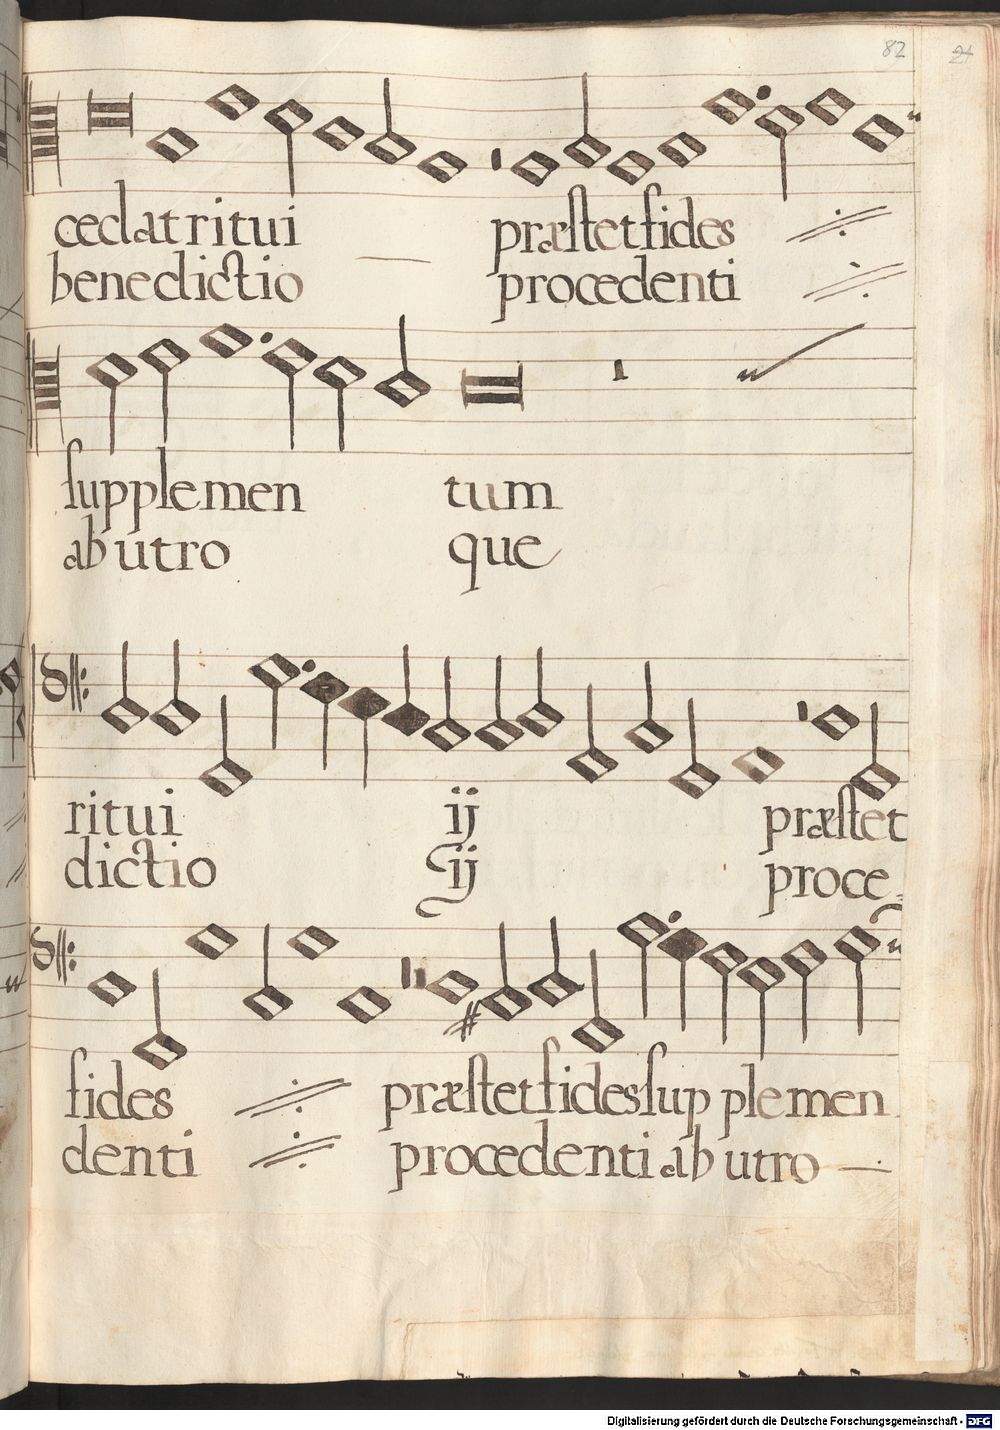 82 21
cedat ritui præſtet fides
benedictio procedenti
ſupplemen tum
ab utro que
ritui ij præſtet
dictio ij proce-
fides præſtet fides ſup plemen
denti procedenti ab utro
Digitalisierung gefördert durch die Deutsche Forschungsgemeinschaft - DFG